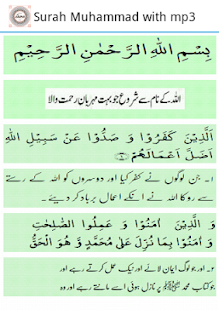 Surah Muhammad with mp3
بِسْمِ اللهِ الرَّحْمٰنِ الرَّحِيْمِ
اللہ کے نام سے شروع جو بہت مہربان رحمت والا
اَلَّذِيْنَ كَفَرُوْا وَ صَدُّوْا عَنْ سَبِيْلِ اللهِ
اَضَلَّ اَعْمَالَهُمْ ﴿۱﴾
۱- جن لوگوں نے کفر کیا اور دوسروں کو اللہ کے رستے
سے روکا اللہ نے انکے اعمال برباد کر دیئے۔
وَ الَّذِيْنَ اٰمَنُوْا وَ عَمِلُوا الصّٰلِحٰتِ
وَ اٰمَنُوْا بِمَا نُزِّلَ عَلٰى مُحَمَّدٍ وَّ هُوَ الْحَقُّ
۲- اور جو لوگ ایمان لائے اور نیک عمل کرتے رہے اور
جو کتاب محمد ﷺ پر نازل ہوئی اسے مانتے رہے اور وہ